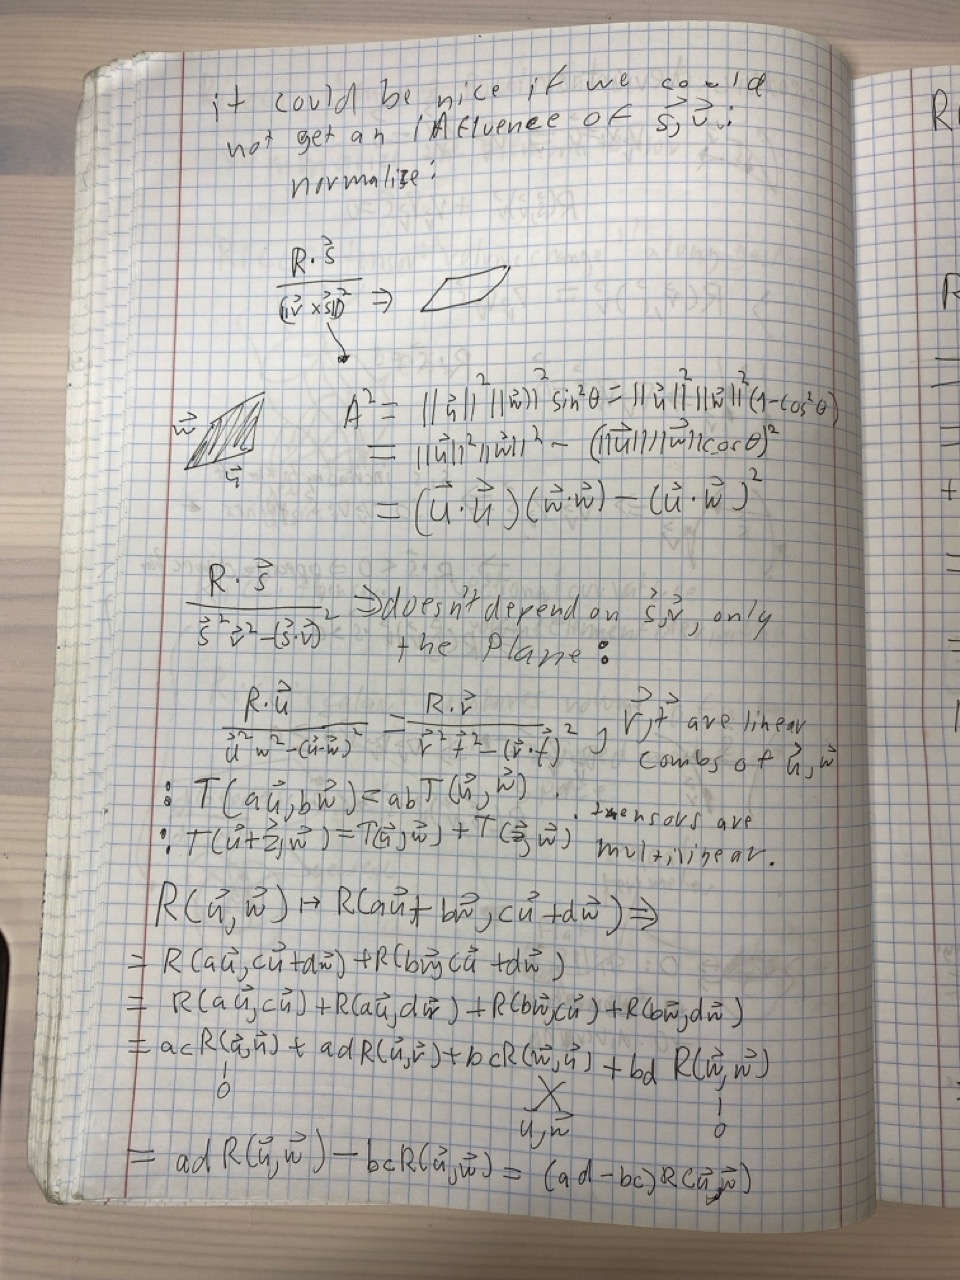 it could be nice if we could
not get an influence of s⃗, v⃗ :
normalize:
R·s⃗ / (||v⃗ × s⃗||)² ⇒
w⃗
u⃗
A² = ||u⃗||² ||w⃗||² sin²θ = ||u⃗||² ||w⃗||² (1-cos²θ)
= ||u⃗||² ||w⃗||² - (||u⃗|| ||w⃗|| cosθ)²
= (u⃗·u⃗)(w⃗·w⃗) - (u⃗·w⃗)²
R·s⃗ / s⃗² v⃗² - (s⃗·v⃗)² ⇒ doesn't depend on s⃗, v⃗, only
the Plane :
R·u⃗ / u⃗² w² - (u⃗·w⃗)² = R·v⃗ / v⃗² t⃗² - (v⃗·t⃗)² , v⃗, t⃗ are linear
combs of u⃗, w⃗
: T(au⃗, bw⃗) = ab T(u⃗, w⃗) .
: T(u⃗+z⃗, w⃗) = T(u⃗, w⃗) + T(z⃗, w⃗)
. tensors are
multilinear.
R(u⃗, w⃗) ↦ R(au⃗ + bw⃗, cu⃗ + dw⃗) ⇒
= R(au⃗, cu⃗ + dw⃗) + R(bw⃗, cu⃗ + dw⃗)
= R(au⃗, cu⃗) + R(au⃗, dw⃗) + R(bw⃗, cu⃗) + R(bw⃗, dw⃗)
= ac R(u⃗, u⃗) + ad R(u⃗, v⃗) + bc R(w⃗, u⃗) + bd R(w⃗, w⃗)
0
u, w
0
= ad R(u⃗, w⃗) - bc R(u⃗, w⃗) = (ad - bc) R(u⃗, w⃗)